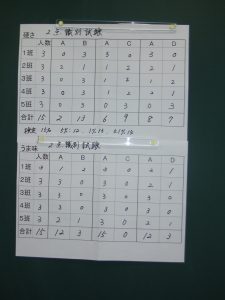 硬さ 2点識別試験
人数 A B A C A D
1班 3 0 3 3 0 3 0
2班 3 2 1 1 2 2 1
3班 3 0 3 1 2 1 2
4班 3 0 3 1 2 2 1
5班 3 0 3 0 3 0 3
合計 15 2 13 6 9 8 7
うま味 2点識別試験
人数 A B A C A D
1班
2班 3 3 0 3 0 2 1
3班 3 3 0 3 0 3 0
4班 3 3 0 3 0 3 0
5班 3 2 1 3 0 2 1
合計 15 12 3 15 0 12 3